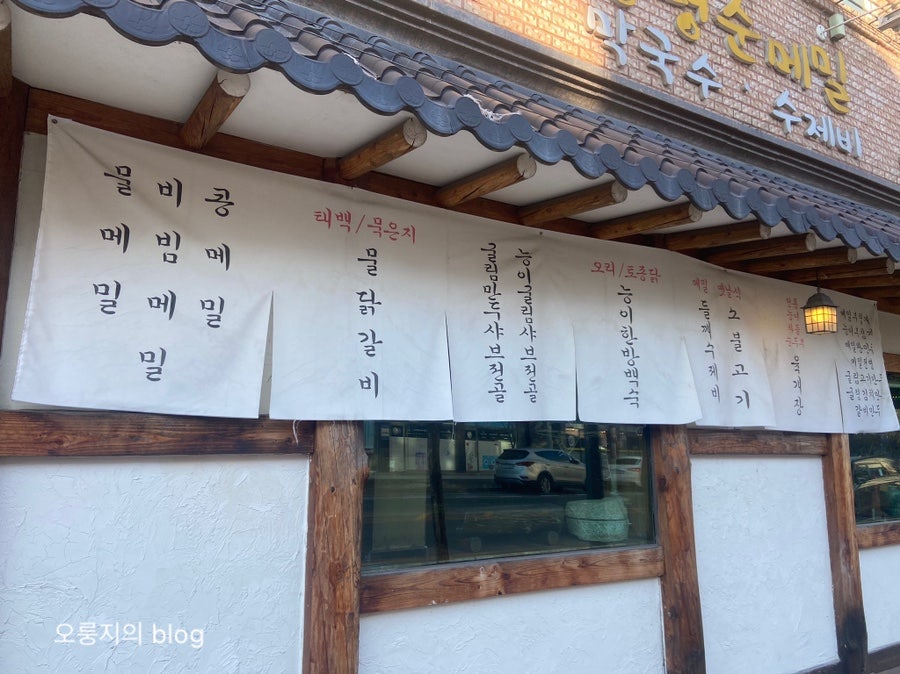 순메밀
막국수 · 수제비
물메밀
비빔메밀
콩메밀
태백/묵은지
물닭갈비
굴림만두샤브전골
능이굴림샤브전골
오리/토종닭
능이한방백숙
메밀
들깨수제비
옛날식
소불고기
육개장
갈비만두
오롱지의 blog